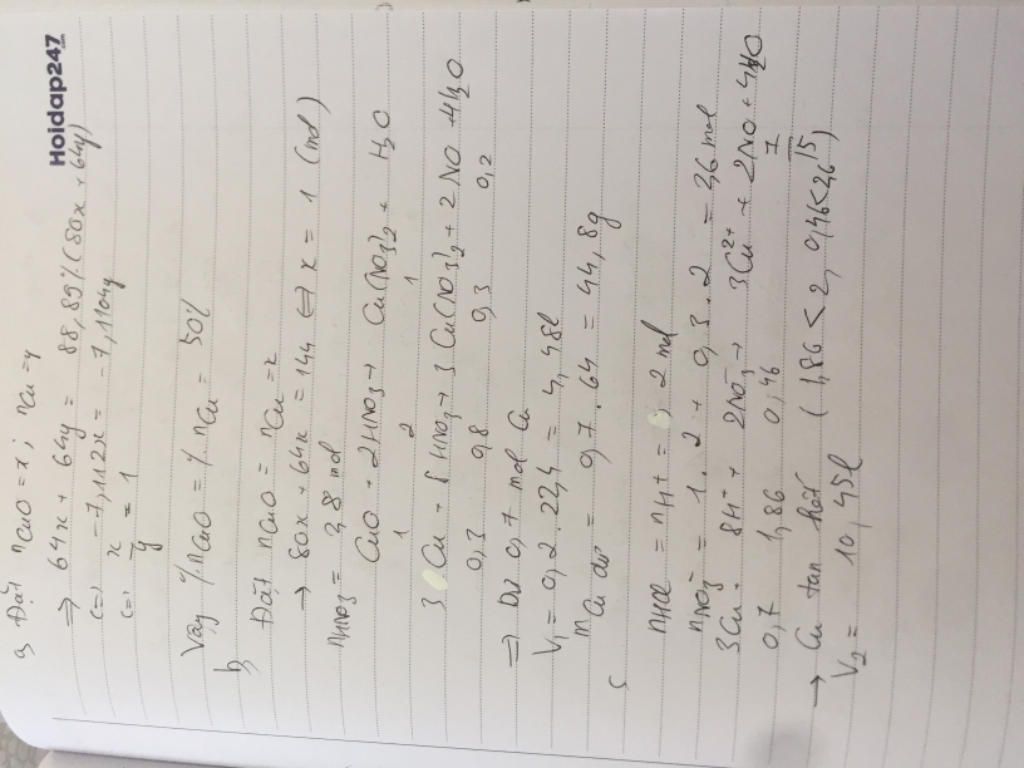 Hoidap247
a, Đặt nCuO = x ; nCu = y
⇒ 64x + 64y = 88,89%(80x + 64y)
(=) -7,112x = -7,1104y
(=) x/y = 1
Vậy %nCuO = %nCu = 50%
b,
Đặt nCuO = nCu = x
→ 80x + 64x = 144 ⇔ x = 1 (mol)
nHNO3 = 2,8 mol
CuO + 2HNO3 → Cu(NO3)2 + H2O
1 2 1
3Cu + 8HNO3 → 3Cu(NO3)2 + 2NO + 4H2O
0,3 0,8 0,3 0,2
⇒ Dư 0,7 mol Cu
V1 = 0,2.22,4 = 4,48l
mCu dư = 0,7.64 = 44,8g
c
nHCl = nH+ = 2 mol
nNO3- = 1.2 + 0,3.2 = 2,6 mol
3Cu + 8H+ + 2NO3- → 3Cu2+ + 2NO + 4H2O
0,7 1,86 0,46 7/15
→ Cu tan hết (1,86 < 2, 0,46<2,6)
V2 = 10,45l